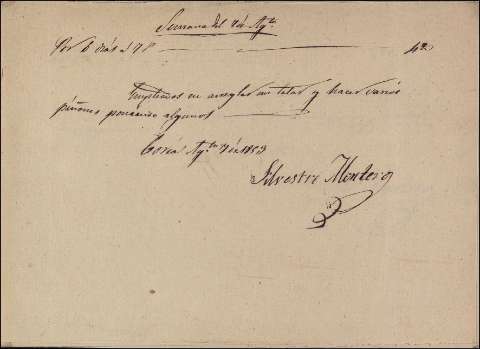 Semana del 7 de Agto
Por 6 dias á 7 R 42
Empleados en arreglar un telar y hacer varios
piñones poniendo algunos
Coria Agto 7 de 1853
Silvestre Montero